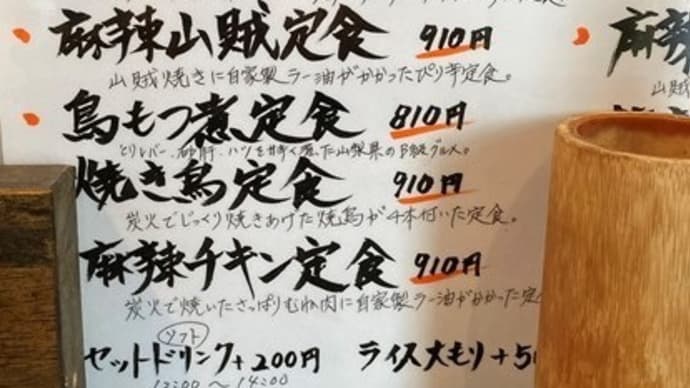 麻辣山賊定食 910円
山賊焼きに自家製ラー油がかかったぴり辛定食。
鳥もつ煮定食 810円
とりレバー、砂肝、ハツを甘辛く煮た山梨県のB級グルメ。
焼き鳥定食 910円
炭火でじっくり焼きあげた焼鳥が4本付いた定食。
麻辣チキン定食 910円
炭火で焼いたさっぱりむね肉に自家製ラー油がかかった定
ソフト
セットドリンク+200円 ライス大もり+50
麻辣